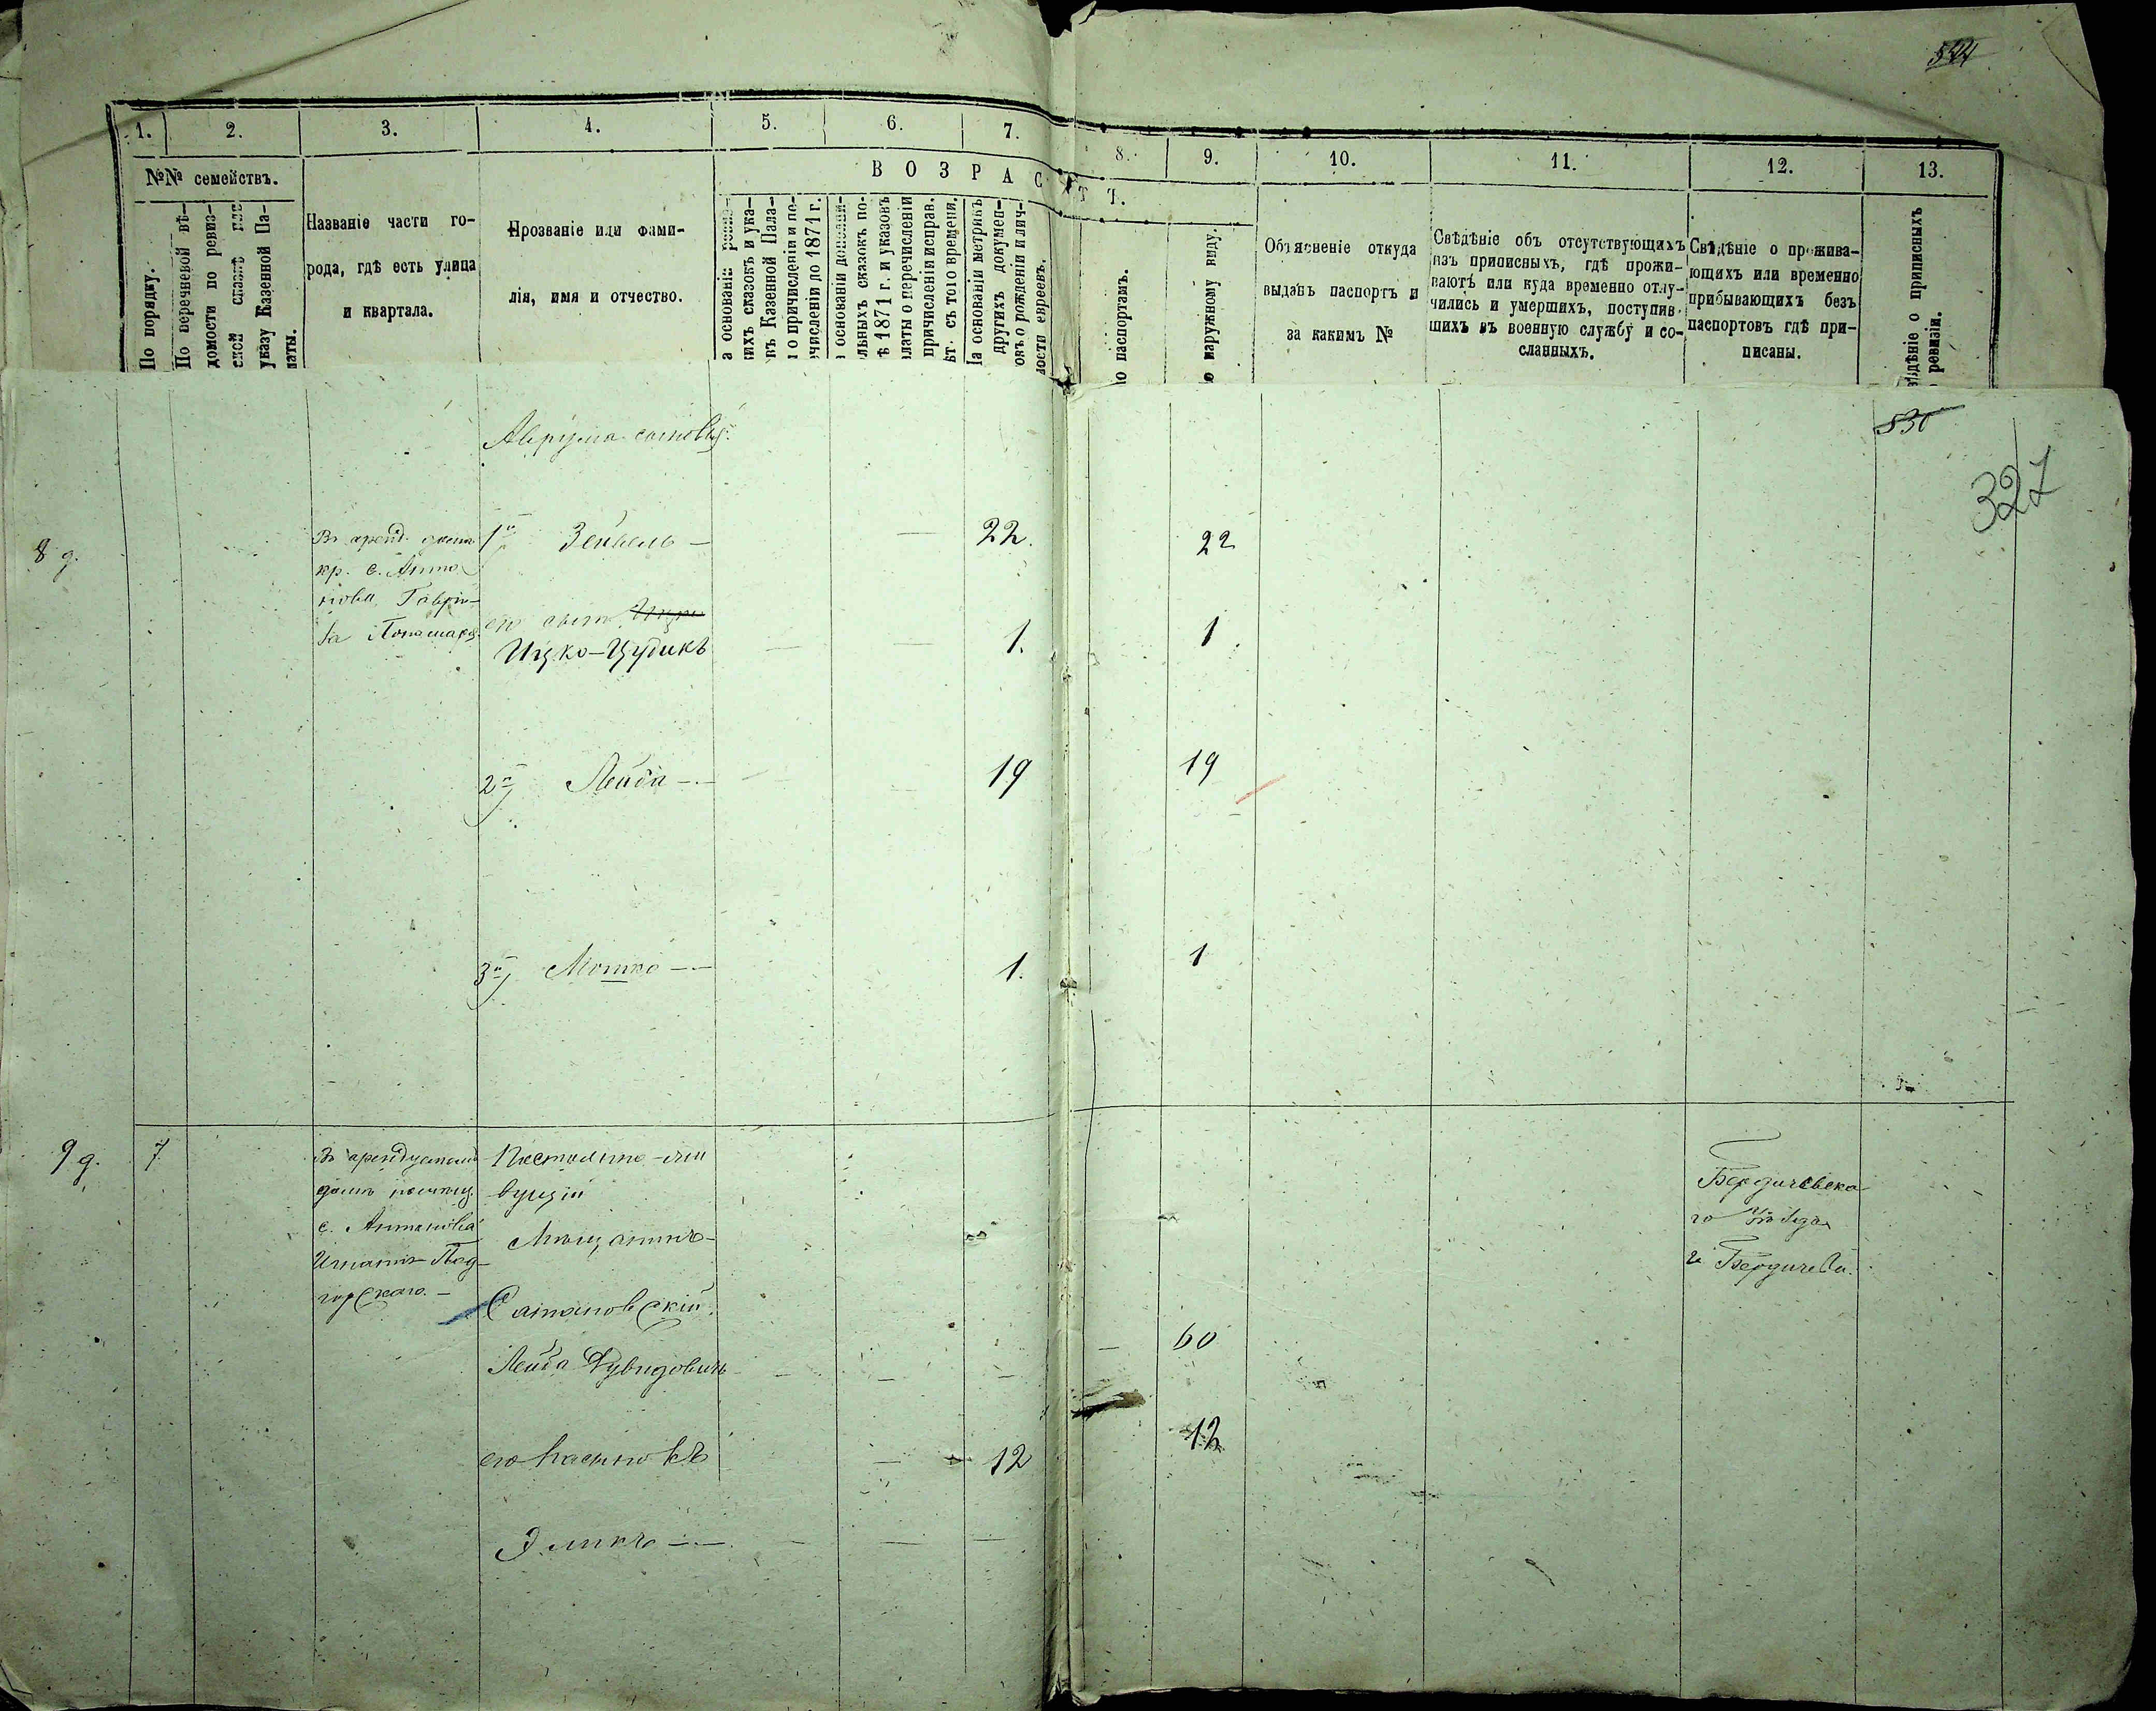 544
1. 2. 3. 4. 5. 6. 7. 8. 9. 10. 11. 12. 13.
№№ семействъ.
ВОЗРАСТЪ.
По порядку.
По перечневой вѣ-
домости по ревиз-
ской сказкѣ или
указу Казенной Па-
латы.
Названіе части го-
рода, гдѣ есть улица
и квартала.
Прозваніе или фами-
лія, имя и отчество.
а основаніи ревиз-
кихъ сказокъ и ука-
въ Казенной Пала-
о причисленіи и пе-
численіи по 1871 г.
основаніи дополни-
льныхъ сказокъ по-
ѣ 1871 г. и указовъ
латы о перечисленіи
причисленіи исправ.
ѣт. съ того времени.
На основаніи метрикъ
другихъ докумен-
овъ о рожденіи и лич-
ности евреевъ.
о паспортамъ.
о наружному виду.
Объясненіе откуда
выданъ паспортъ и
за какимъ №
Свѣдѣніе объ отсутствующихъ
изъ приписныхъ, гдѣ прожи-
ваютъ или куда временно отлу-
чились и умершихъ, поступив-
шихъ въ военную службу и со-
сланныхъ.
Свѣдѣніе о прожива-
ющихъ или временно
прибывающихъ безъ
паспортовъ гдѣ при-
писаны.
ѣдѣніе о приписныхъ
ревизіи.
830
327
Аврума сыновья:
8 д.
Въ аренд. домѣ
кр. с. Анто
нова Гаври-
ла
1й Зейвель — — 22. 22
его сынъ Ицко
Ицко-Цудикъ — — 1. 1.
2й Лейба — — — 19 19
3й Мошко — 1. 1
9 д. 7
Въ арендуемомъ
домѣ помѣщ.
с. Антонова
Игнатія Под-
горскаго. —
вущій
Мѣщанинъ
Сатановскій.
Лейба Дувидовичъ — — — — 60
его пасынокъ — — 12 12
Эликъ — — — —
Бердичевска
го Уѣзда
г. Бердичева.